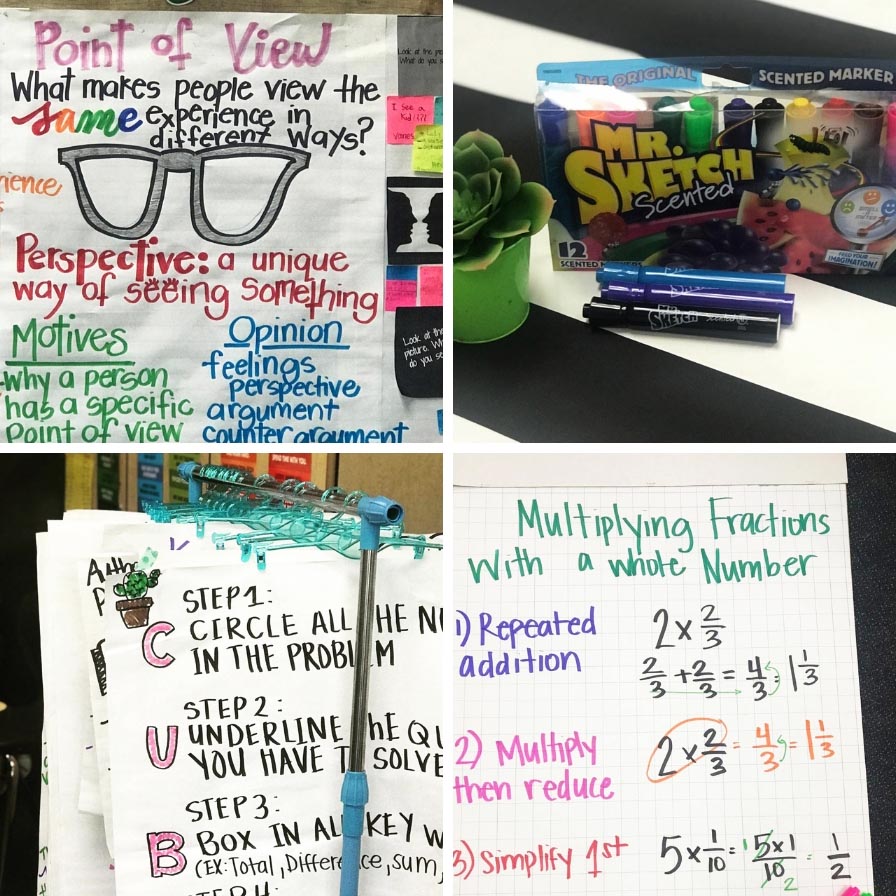 Point of View
What makes people view the
same experience in
different ways?
Perspective: a unique
way of seeing something
Motives
why a person
has a specific
point of view
Opinion
feelings
perspective
argument
counter argument
I see a
Look at the
picture.
do you
THE ORIGINAL
SCENTED MARKER
MR.
SKETCH
Scented
12
SCENTED
FEED YOUR
IMAGINATION!
MR. SKETCH scented
STEP 1:
C CIRCLE ALL THE
IN THE PROBLEM
STEP 2:
U UNDERLINE THE
YOU HAVE TO SOLVE
STEP 3:
B BOX IN ALL KEY W
(EX: Total, Difference, sum,
STEP 4:
Multiplying Fractions
with a whole Number
1) Repeated
addition
2 x 2/3
2/3 + 2/3 = 4/3 = 1 1/3
2) Multiply
then reduce
2 x 2/3 = 4/3 = 1 1/3
3) Simplify 1st
5 x 1/10 = 1 5 x 1/10 2 = 1/2